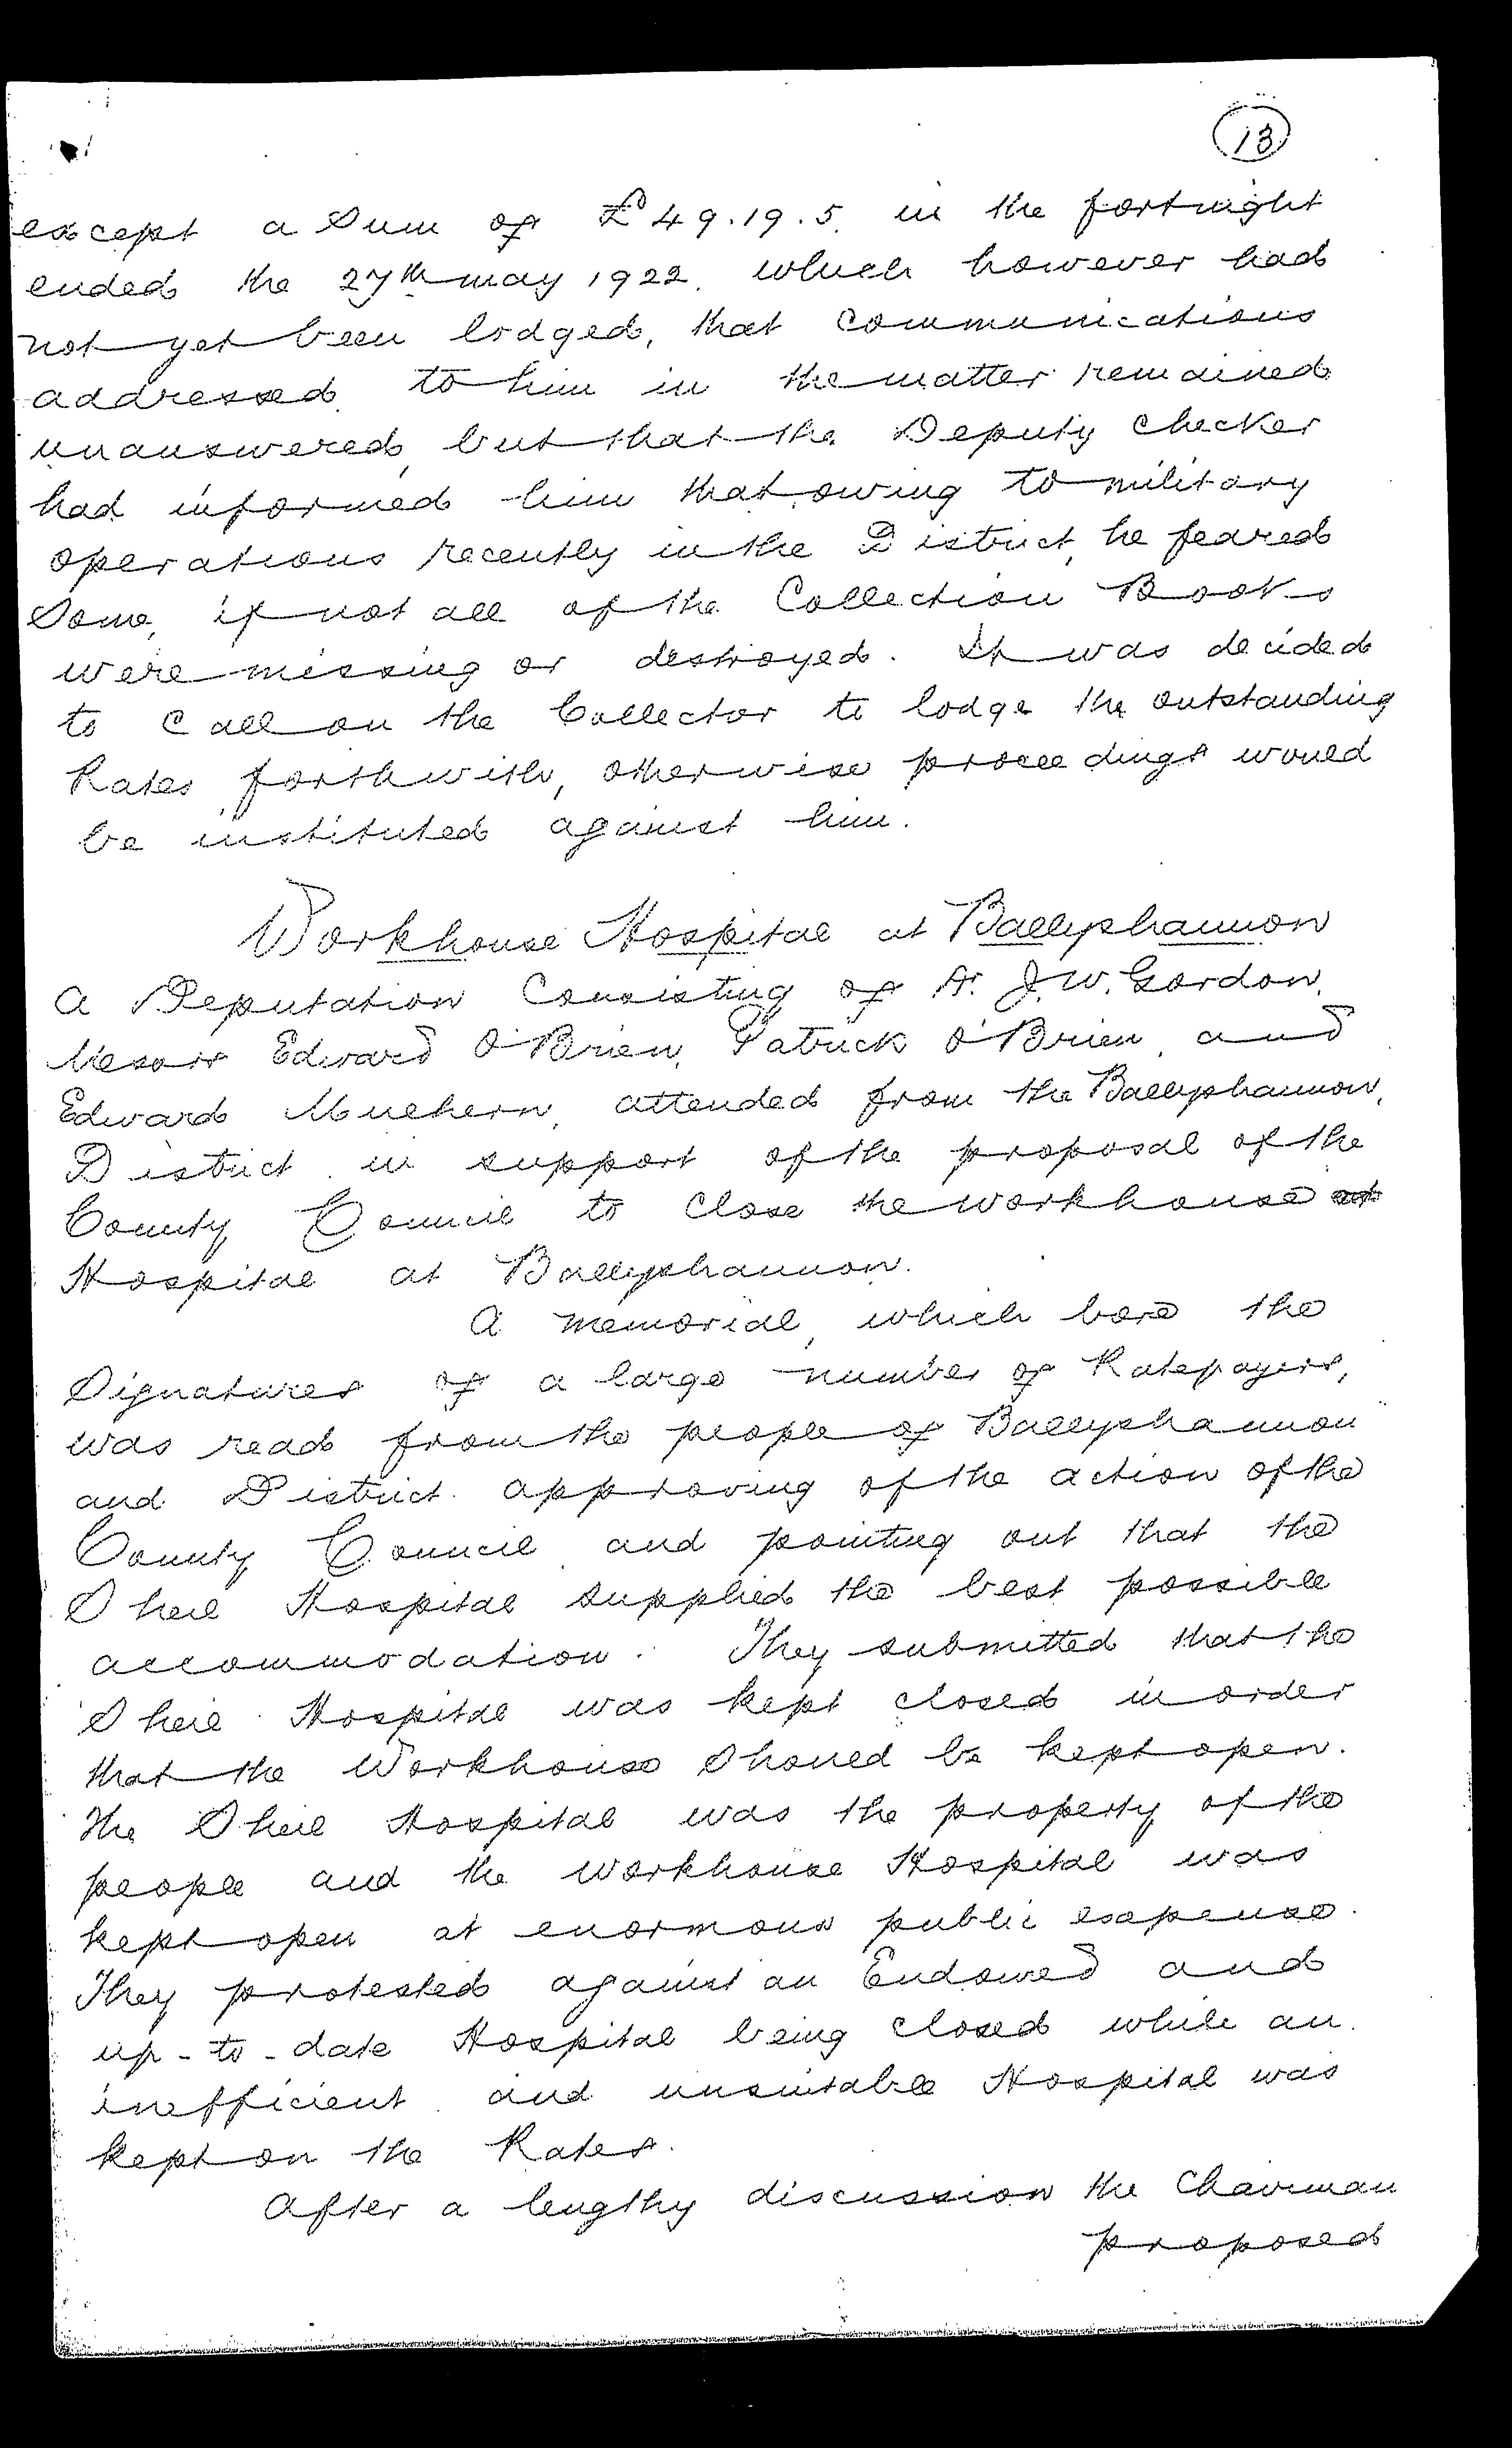 13
except a Sum of £49.19.5. in the fortnight
ended the 27th May 1922, which however had
not yet been lodged, that communications
addressed to him in the matter remained
unanswered, but that the Deputy Checker
had informed him that owing to military
operations recently in the District, he feared
Some, if not all of the Collection Books
were missing or destroyed. It was decided
to Call on the Collector to lodge the outstanding
Rates forthwith, otherwise proceedings would
be instituted against him.
Workhouse Hospital at Ballyshannon
A Deputation Consisting of Dr. J. W. Gordon,
Messrs Edward O'Brien, Patrick O'Brien, and
Edward Mulhern, attended from the Ballyshannon,
District in support of the proposal of the
County Council to Close the Workhouse
Hospital at Ballyshannon.
A memorial, which bore the
Signatures of a large number of Ratepayers,
was read from the people of Ballyshannon
and District approving of the action of the
County Council and pointing out that the
Sheil Hospital supplied the best possible
accommodation. They submitted that the
Sheil Hospital was kept closed in order
that the Workhouse Should be kept open.
The Sheil Hospital was the property of the
people and the Workhouse Hospital was
kept open at enormous public expense.
They protested against an Endowed and
up-to-date Hospital being closed while an
inefficient and unsuitable Hospital was
kept on the Rates.
After a lengthy discussion the Chairman
proposed